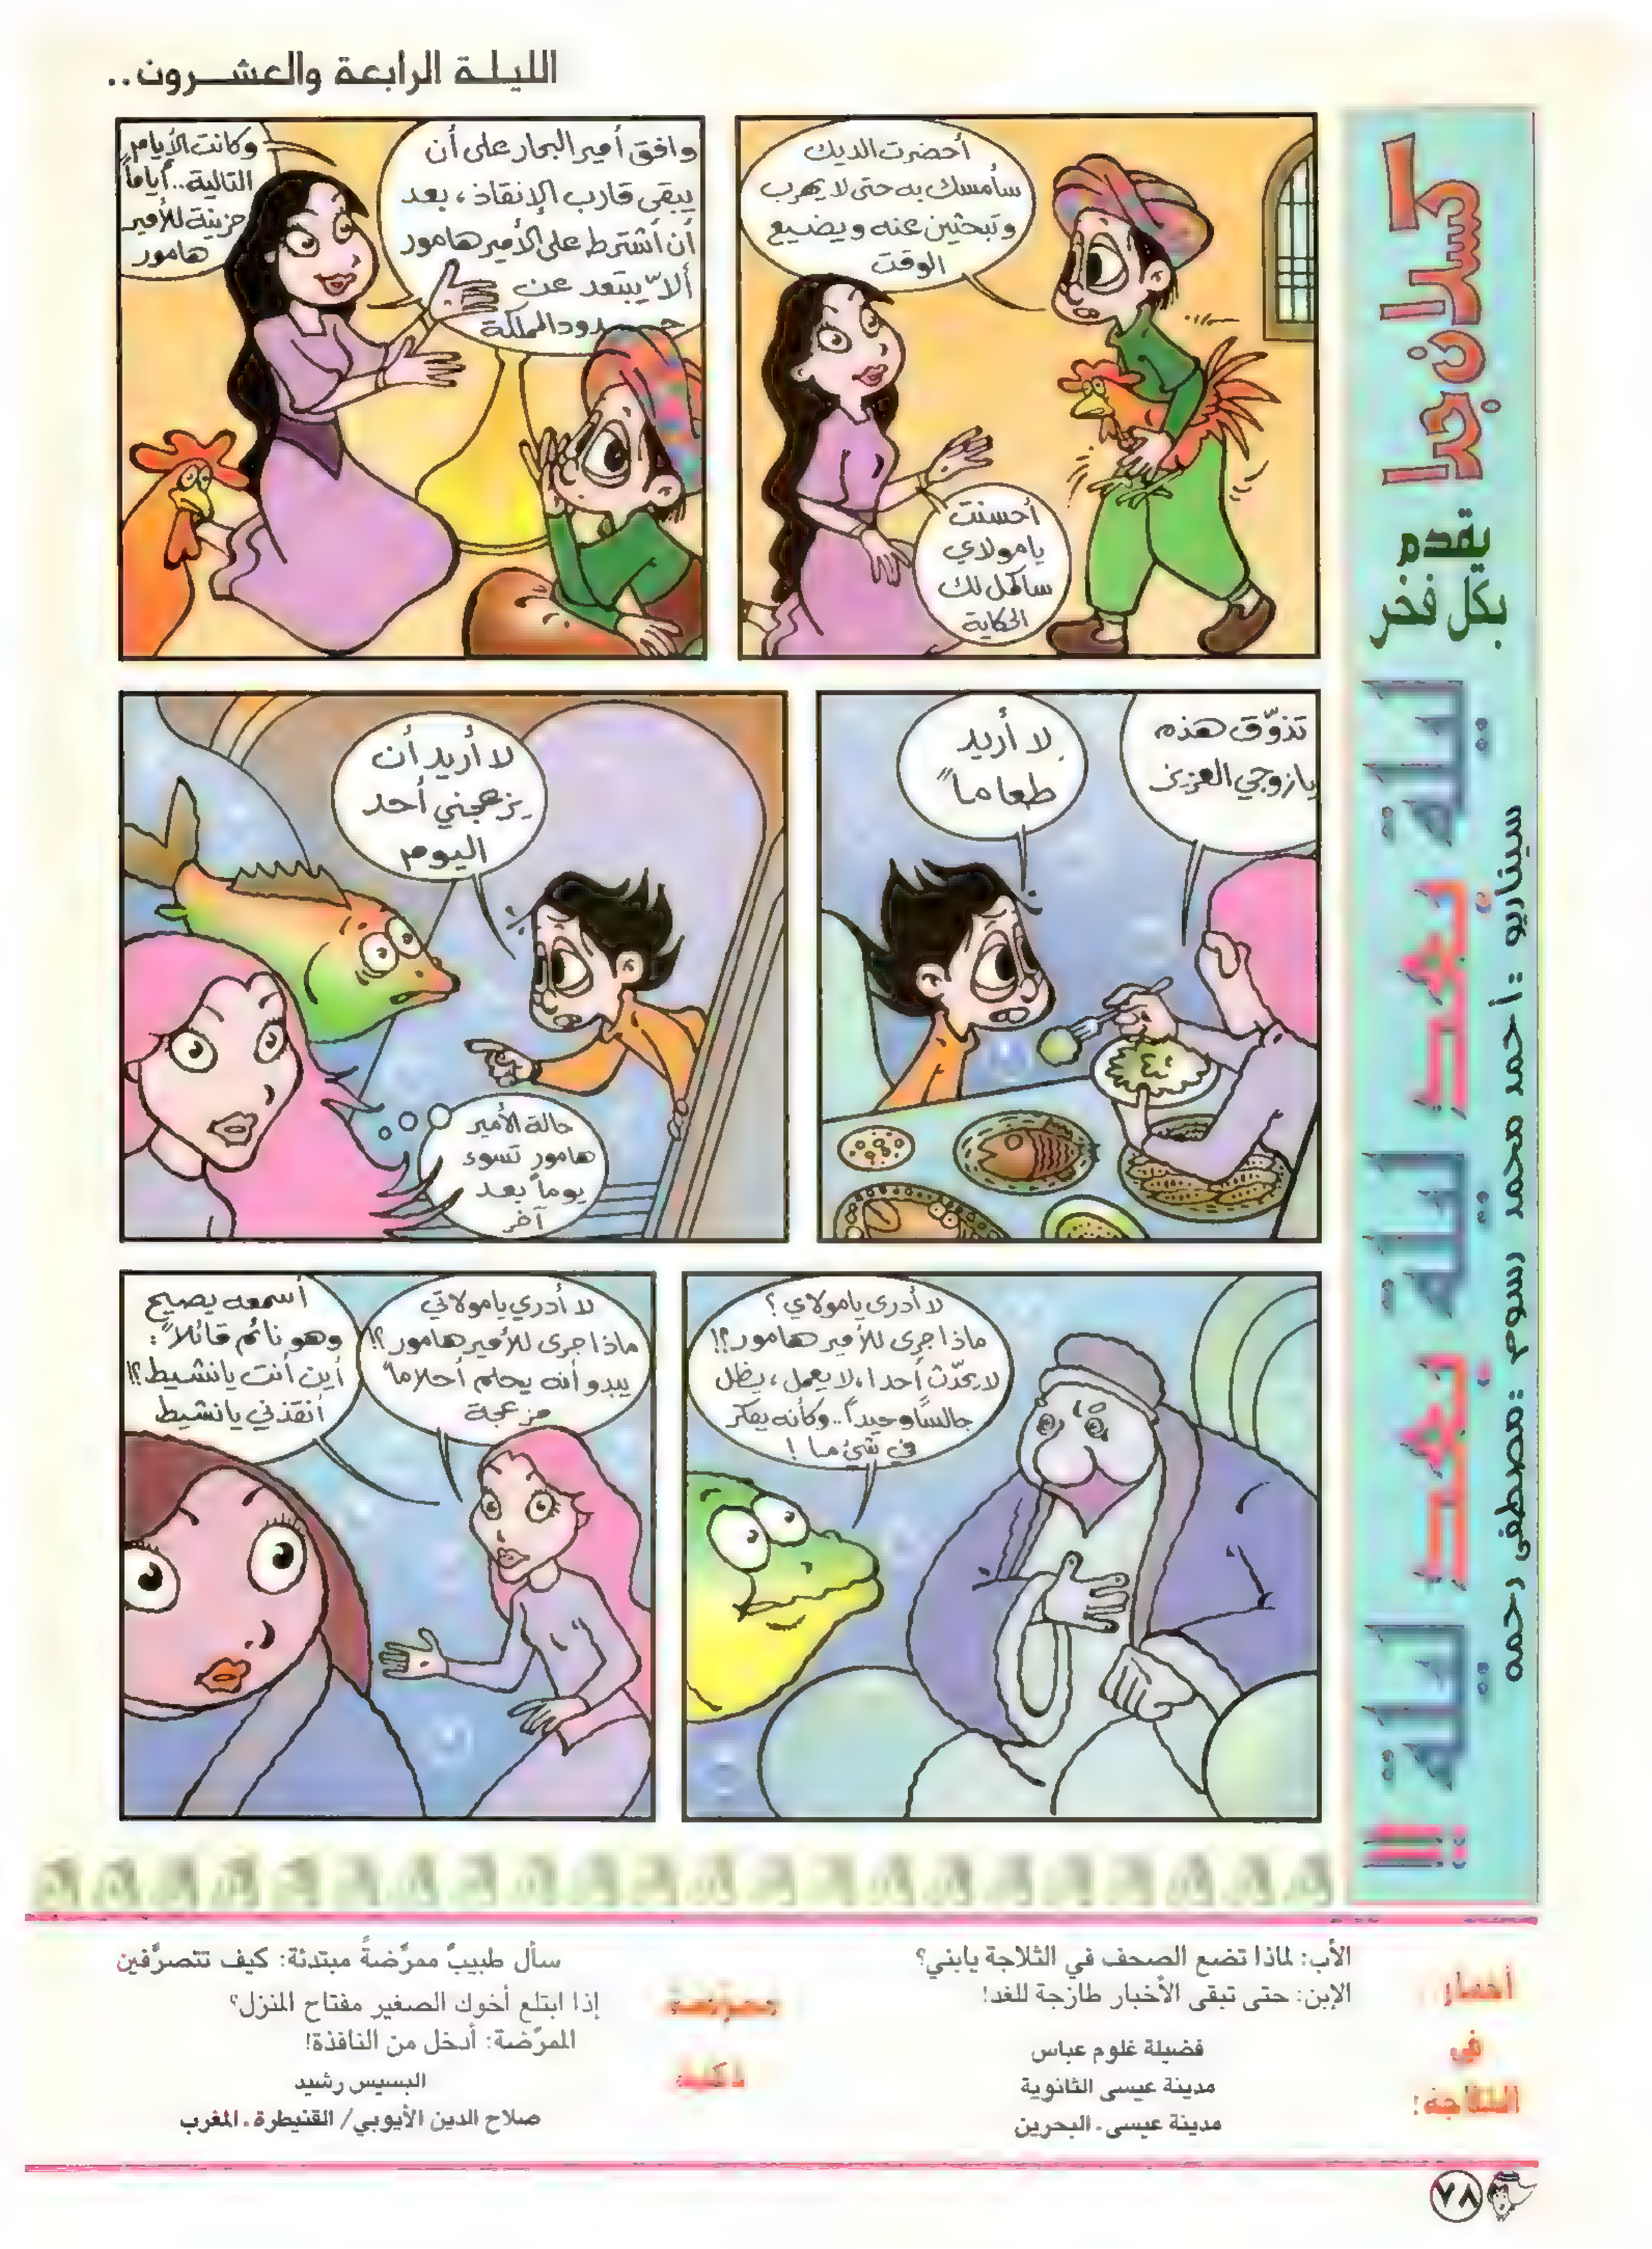 الليلة الرابعة والعشرون..
كسلان جدا
يقدم
بكل فخر
ليلة بعد ليلة بعد ليلة !!!
سيناريو : أحمد محمد رسوم : مصطفى رحمه
أحضرت الديك
سأمسك به حتى لا يهرب
وتبحثين عنه ويضيع
الوقت
أحسنت
يا مولاي
سأكمل لك
الحكاية
وافق أمير البحار على أن
يبقى قارب الإنقاذ، بعد
أن أشترط على الأمير هامور
ألاّ يبتعد عن
حدود المملكة
وكانت الأيام
التالية.. أياماً
حزينة للأمير
هامور
تذوّق هذه
يا زوجي العزيز
لا أريد
طعاماً
لا أريد أن
يزعجني أحد
اليوم
حالة الأمير
هامور تسوء
يوماً بعد
آخر
لا أدري يا مولاي؟
ماذا جرى للأمير هامور؟!
لا يحدّث أحدا، لا يعمل، يظل
جالساً وحيداً.. وكأنه يفكر
في شئ ما!
لا أدري يا مولاتي
ماذا جرى للأمير هامور؟!
يبدو أنه يحلم أحلاماً
مزعجة
أسمعه يصيح
وهو نائم قائلاً:
أين أنت يا نشيط؟!
أنقذني يا نشيط
أخبار
في
الثلاجة!
الأب: لماذا تضع الصحف في الثلاجة يابني؟
الإبن: حتى تبقى الأخبار طازجة للغد!
فضيلة غلوم عباس
مدينة عيسى الثانوية
مدينة عيسى - البحرين
ممرّضة
ذكية
سأل طبيبٌ ممرّضةً مبتدئة: كيف تتصرَّفين
إذا ابتلع أخوك الصغير مفتاح المنزل؟
الممرّضة: أدخل من النافذة!
البسيس رشيد
صلاح الدين الأيوبي/ القنيطرة - المغرب
٧٨